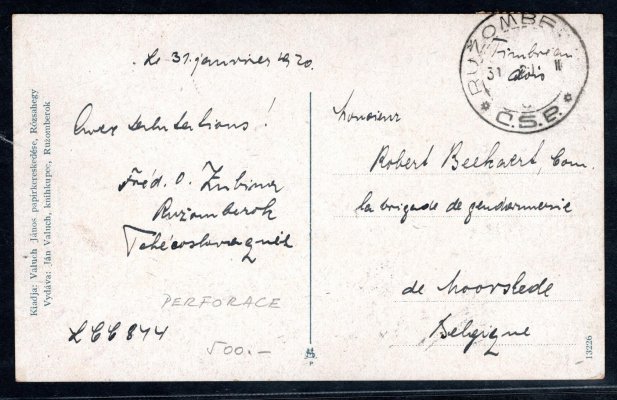 Kiadja: Valuch János papírkereskedése, Rózsahegy
Vydáva: Ján Valuch, kníhkupec, Ružomberok
Le 31 janvier 1920.
Avec salutations!
Fréd. O. Zubiner
Ružomberok
Tchécoslovaquie
PERFORACE
LCC 844
500.-
RUŽOMBE
Timbre au
dos
31
Č.S.P.
Monsieur
Robert Beekaert, Com.
la brigade de gendarmerie
de Moorslede
Belgique
13226